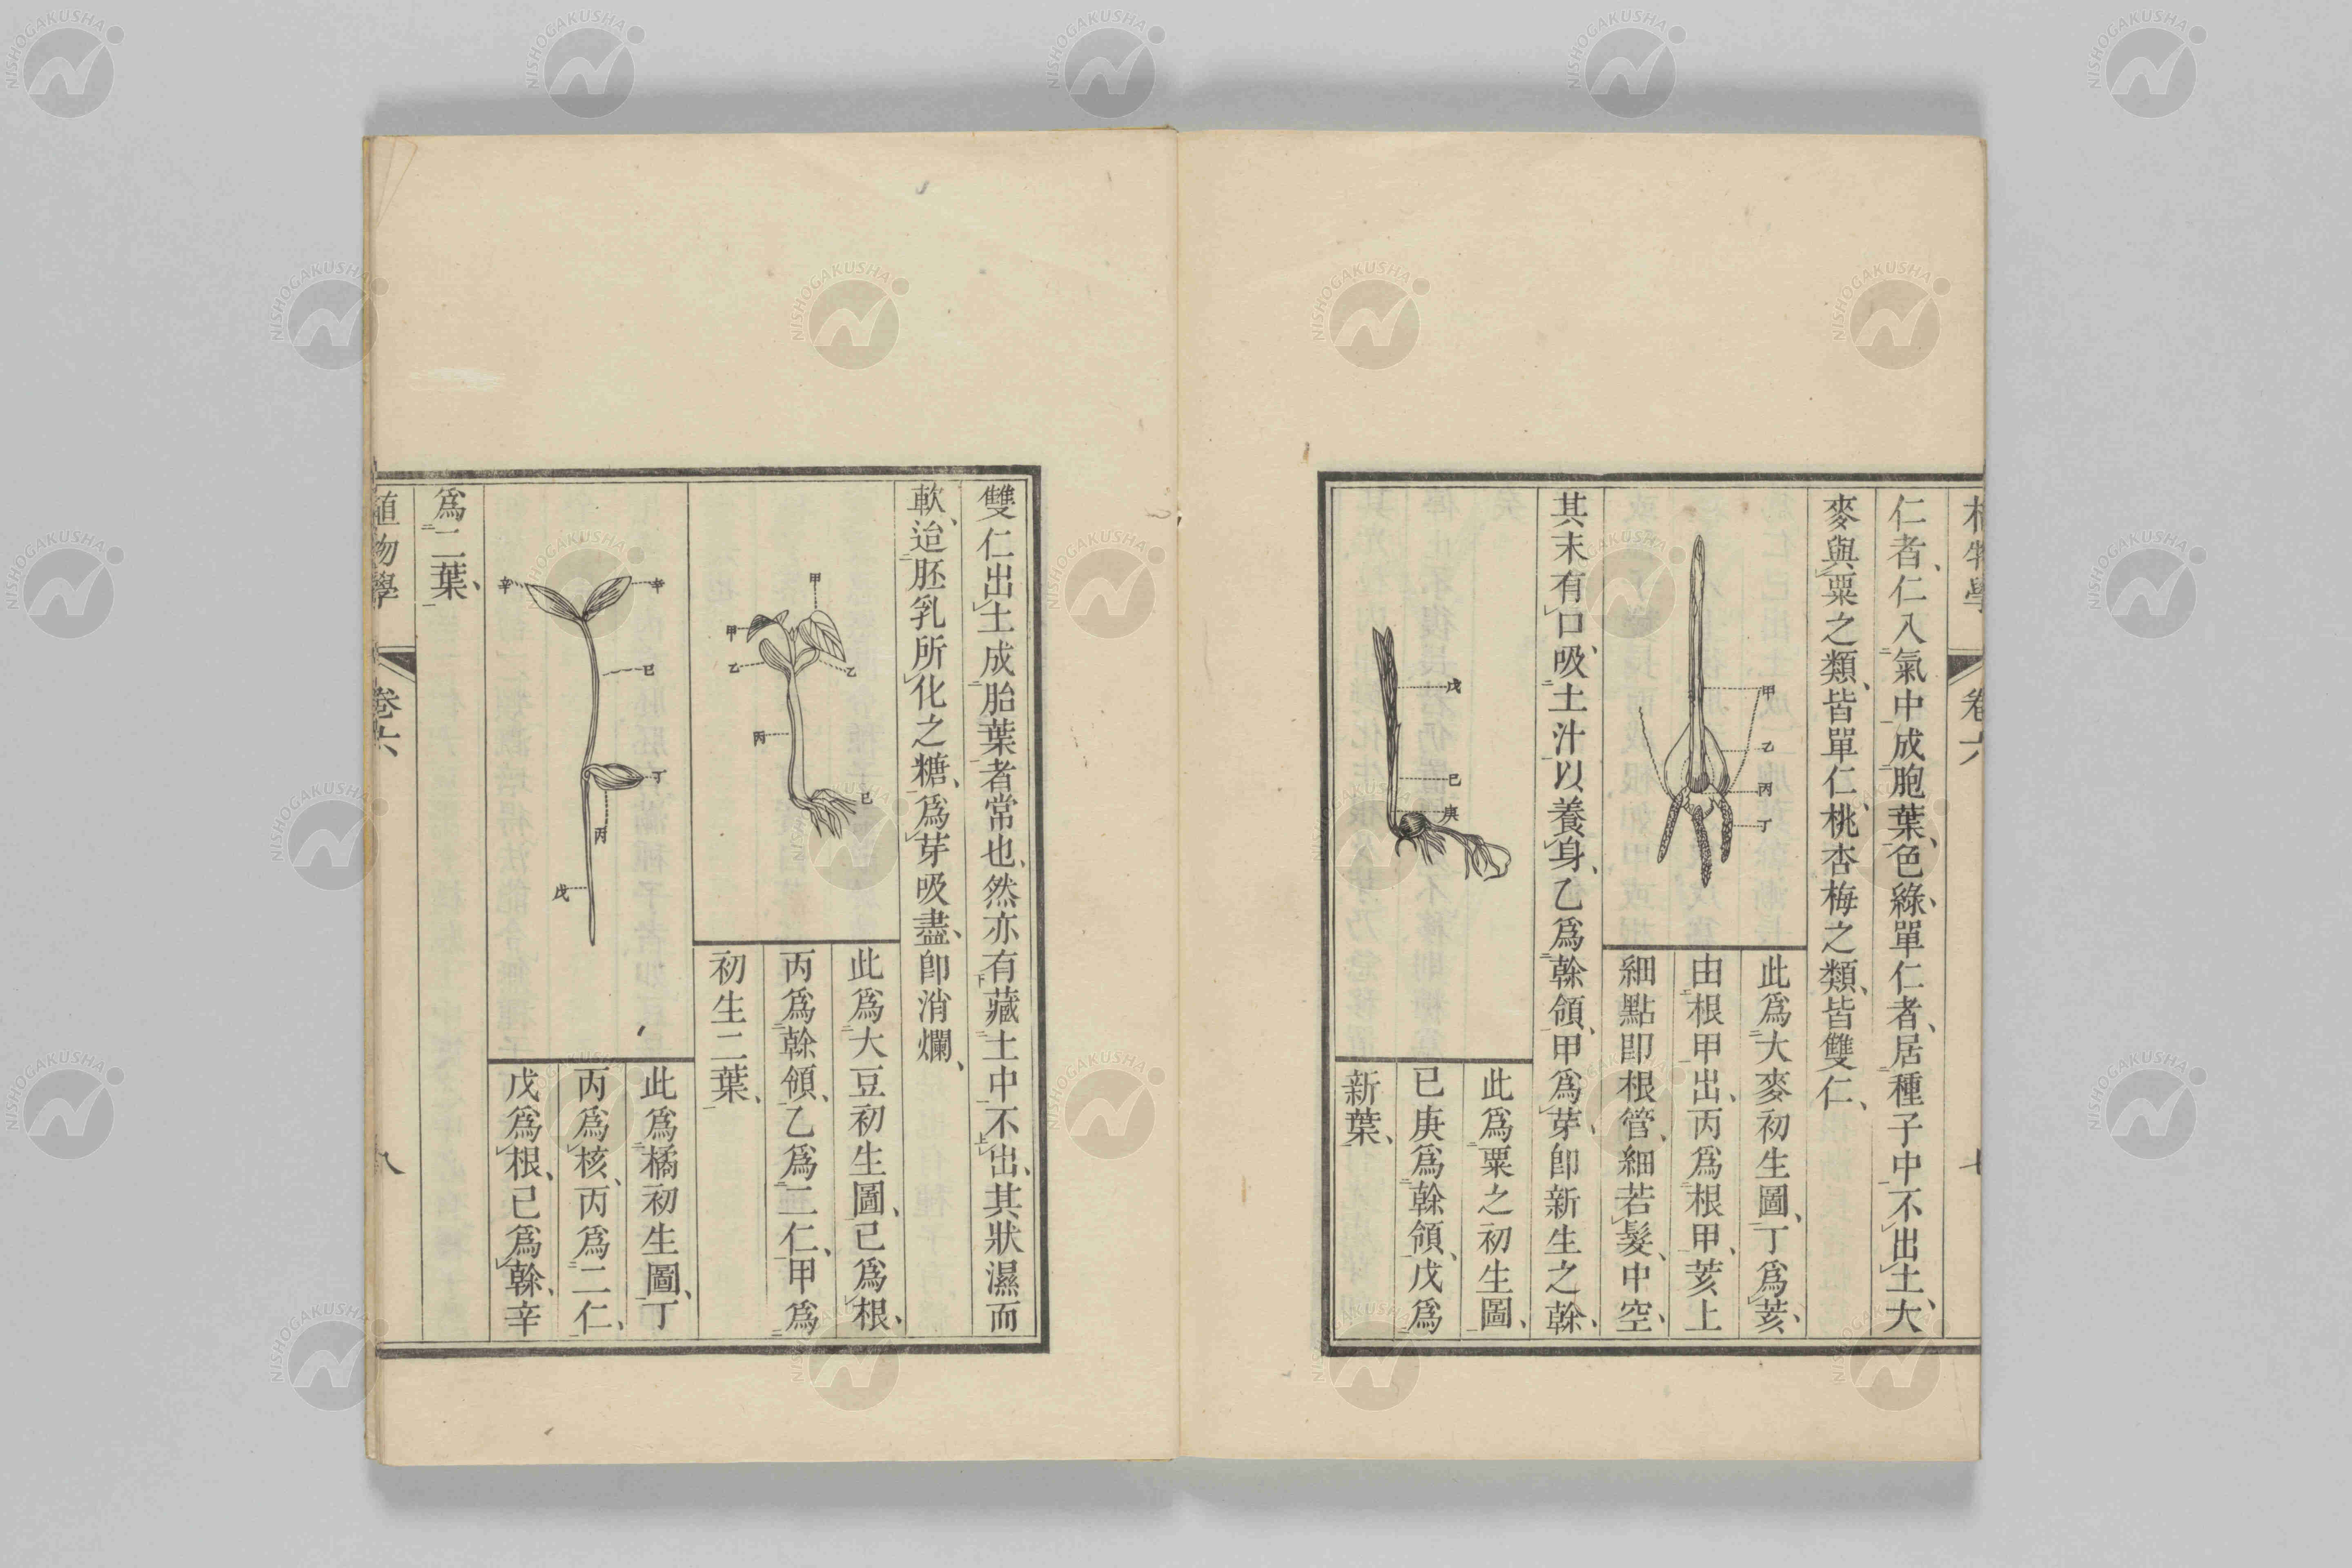 仁者、仁入氣中成胞葉、色綠、單仁者、居種子中不出土、大
麥與粟之類、皆單仁、桃杏梅之類、皆雙仁、
此爲大麥初生圖、丁爲荄、
由根甲出、丙爲根甲、荄上
細點卽根管、細若髮、中空、
甲
乙
丙
丁
其末有口、吸土汁以養身、乙爲幹領、甲爲芽、卽新生之幹、
此爲粟之初生圖、
已庚爲幹領、戊爲
新葉、
戊
已
庚
雙仁出土成胎葉者常也、然亦有藏土中不出、其狀濕而
軟、迨胚乳所化之糖、爲芽吸盡、卽消爛、
此爲大豆初生圖、已爲根、
丙爲幹領、乙爲二仁、甲爲
初生二葉、
甲
甲
乙
乙
丙
已
此爲橘初生圖、丁
丙爲核、丙爲二仁、
戊爲根、已爲幹、辛
辛
辛
已
丁
丙
戊
爲二葉、
植物學
卷六
八
NISHOGAKUSHA